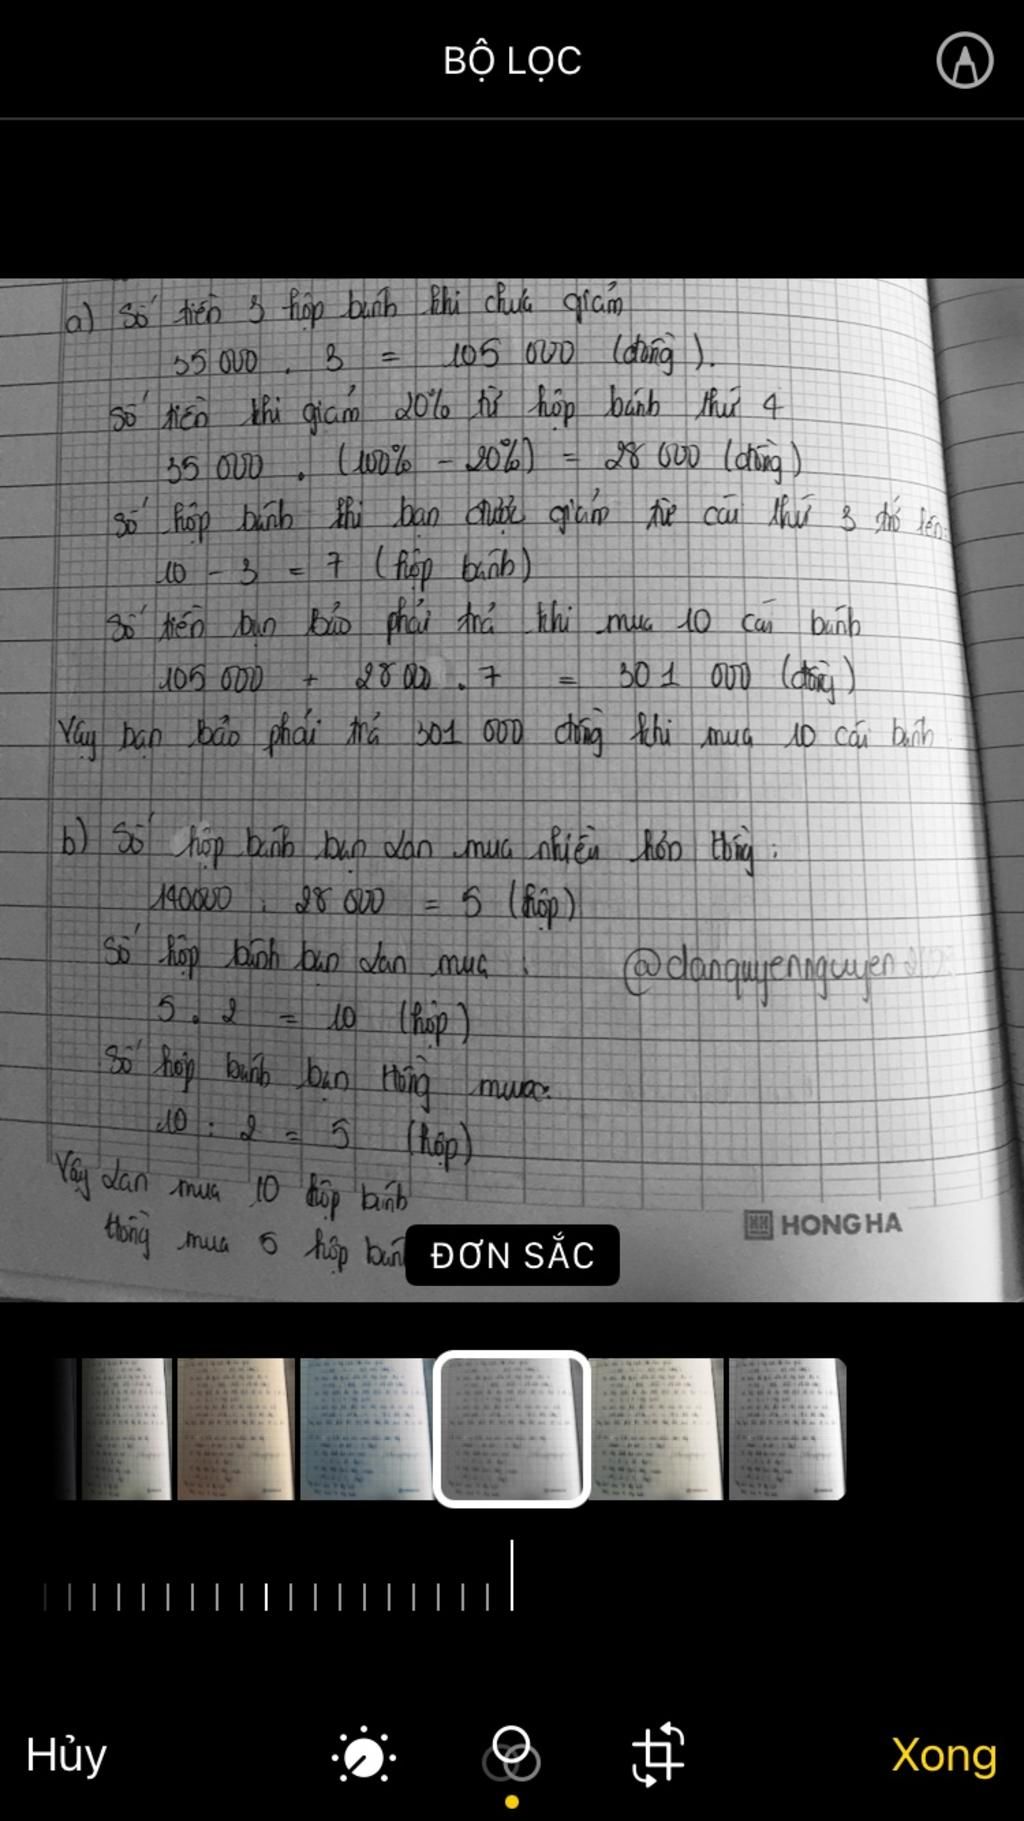 BỘ LỌC
a) Số tiền 3 hộp bánh khi chưa giảm
35 000 . 3 = 105 000 (đồng).
Số tiền khi giảm 20% từ hộp bánh thứ 4
35 000 . (100% - 20%) = 28 000 (đồng)
Số hộp bánh khi bạn được giảm từ cái thứ 3 trở lên:
10 - 3 = 7 (hộp bánh)
Số tiền bạn bảo phải trả khi mua 10 cái bánh
105 000 + 28 000 . 7 = 301 000 (đồng)
Vậy bạn bảo phải trả 301 000 đồng khi mua 10 cái bánh
b) Số hộp bánh bạn Lan mua nhiều hơn Hồng:
140000 : 28 000 = 5 (hộp)
Số hộp bánh bạn Lan mua :
@danquyennguyen
5 . 2 = 10 (hộp)
Số hộp bánh bạn Hồng mua:
10 : 2 = 5 (hộp)
Vậy Lan mua 10 hộp bánh
Hồng mua 5 hộp bánh
HONG HA
ĐƠN SẮC
Hủy
Xong